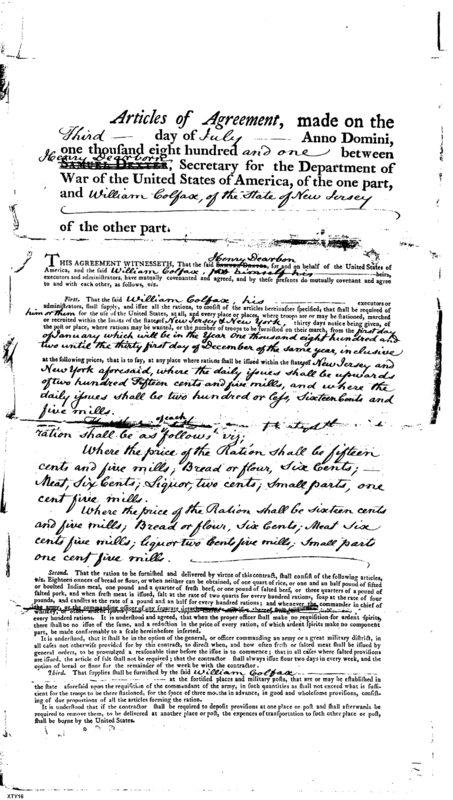 Articles of Agreement, made on the
Third — day of July — Anno Domini,
one thousand eight hundred and one between
Henry Dearborn
SAMUEL DEXTER, Secretary for the Department of
War of the United States of America, of the one part,
and William Colfax, of the State of New Jersey
of the other part.
THIS AGREEMENT WITNESSETH, That the said Henry Dearborn for and on behalf of the United States of
America, and the said William Colfax, for himself his heirs,
executors and administrators, have mutually covenanted and agreed, and by these presents do mutually covenant and agree
to and with each other, as follows, viz.
First. That the said William Colfax, his executors or
administrators, shall supply, and issue all the rations, to consist of the articles hereinafter specified, that shall be required of
him or them for the use of the United States, at all, and every place or places, where troops are or may be stationed, marched
or recruited within the limits of the states of New Jersey & New York, thirty days notice being given, of
the post or place, where rations may be wanted, or the number of troops to be furnished on their march, from the first day
of January which will be in the Year One thousand eight hundred and
two until the thirty first day of December of the same year, inclusive
at the following prices, that is to say, at any place where rations shall be issued within the states of New Jersey and
New York aforesaid, where the daily issues shall be upwards
of two hundred Fifteen cents and five mills, and where the
daily issues shall be two hundred or less, Sixteen Cents and
five mills.
of each
ration shall be as follows viz;
Where the price of the Ration shall be fifteen
cents and five mills; Bread or flour, Six Cents; —
Meat, Six Cents; Liquor, two cents; Small parts, one
cent five mills.
Where the price of the Ration shall be sixteen cents
and five mills; Bread or flour, Six Cents; Meat Six
cents five mills; liquor two Cents five mills; Small parts
one cent five mills
Second. That the ration to be furnished and delivered by virtue of this contract, shall consist of the following articles,
viz. Eighteen ounces of bread or flour, or when neither can be obtained, of one quart of rice, or one and an half pound of sifted
or boulted Indian meal, one pound and a quarter of fresh beef, or one pound of salted beef, or three quarters of a pound of
salted pork, and when fresh meat is issued, salt at the rate of two quarts for every hundred rations, soap at the rate of four
pounds, and candles at the rate of a pound and an half for every hundred rations; and whenever the commander in chief of
the army, or the commanding officer of any separate detachment
every hundred rations. It is understood and agreed, that when the proper officer shall make no requisition for ardent spirits,
there shall be no issue of the same, and a reduction in the price of every ration, of which ardent spirits make no component
part, be made conformably to a scale hereinbefore inserted.
It is understood, that it shall be in the option of the general, or officer commanding an army or a great military district, in
all cases not otherwise provided for by this contract, to direct when, and how often fresh or salted meat shall be issued by
general orders, to be promulged a reasonable time before the issue is to commence; that in all cases where salted provisions
are issued, the article of salt shall not be required; that the contractor shall always issue flour two days in every week, and the
option of bread or flour for the remainder of the week be with the contractor.
Third. That supplies shall be furnished by the said William Colfax
at the fortified places and military posts, that are or may be established in
the state aforesaid upon the requisition of the commandant of the army, in such quantities as shall not exceed what is suffi-
cient for the troops to be there stationed, for the space of three months in advance, in good and wholesome provisions, consist-
ing of due proportions of all the articles forming the ration.
It is understood that if the contractor shall be required to deposit provisions at one place or post and shall afterwards be
required to remove them, to be delivered at another place or post, the expences of transportation to such other place or post,
shall be borne by the United States.
XTY16